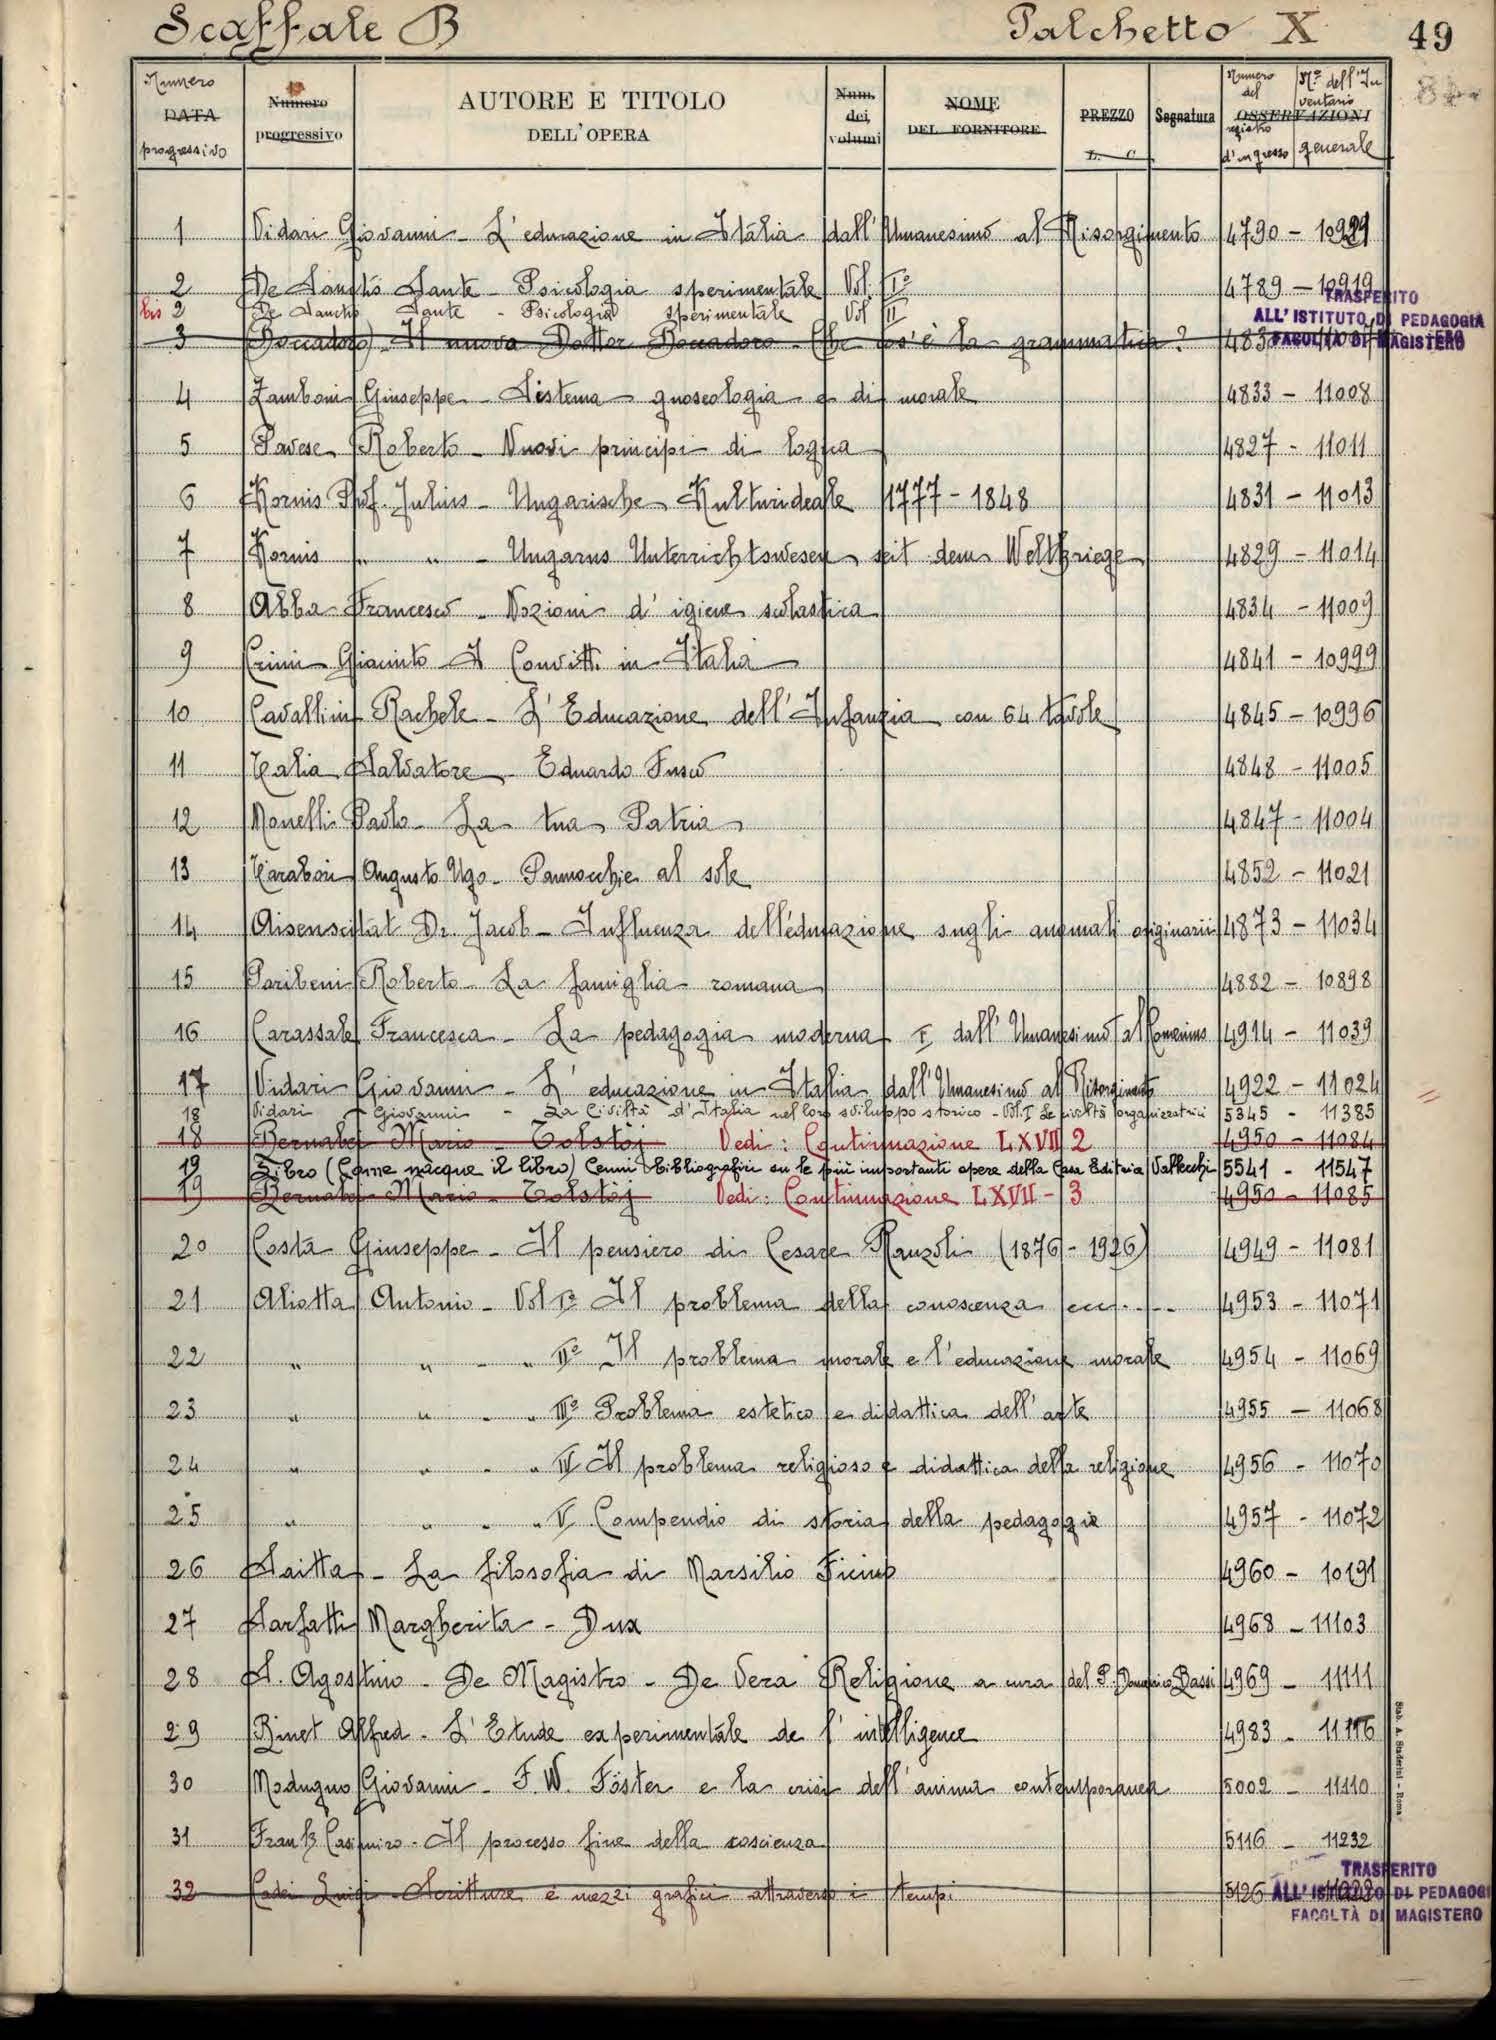 Scaffale B Palchetto X 49
Numero DATA progressivo
Numero progressivo
AUTORE E TITOLO DELL'OPERA
Num. dei volumi
NOME DEL FORNITORE
PREZZO L. C.
Segnatura
OSSERVAZIONI
Numero del registro d'ingresso
N.o dell'Inventario generale
1 Vidari Giovanni - L'educazione in Italia dall'Umanesimo al Risorgimento 4790 -
2 De Sanctis Sante - Psicologia sperimentale Vol. Io 4789 - 10919
bis 2 De Sanctis Sante - Psicologia sperimentale Vol II
TRASFERITO
ALL'ISTITUTO DI PEDAGOGIA
FACOLTÀ DI MAGISTERO
3 (Boccadoro) - Il nuovo Dottor Boccadoro - Che cos'è la grammatica?
4 Zamboni Giuseppe - Sistema gnoseologia e di morale 4833 - 11008
5 Pavese Roberto - Nuovi principi di logica 4827 - 11011
6 Kornis Prof. Julius - Ungarische Kulturideale 1777 - 1848 4831 - 11013
7 Kornis " " - Ungarns Unterrichtswesen seit dem Weltkriege 4829 - 11014
8 Abba Francesco - Nozioni d'igiene scolastica 4834 - 11009
9 Crimi Giacinto I Convitti in Italia 4841 - 10999
10 Cavallini Rachele - L'Educazione dell'Infanzia con 64 tavole 4845 - 10996
11 Talia Salvatore - Eduardo Fusco 4848 - 11005
12 Monelli Paolo - La tua Patria 4847 - 11004
13 Augusto Ugo - Pannocchie al sole 4852 - 11021
14 Dr. Jacob - Influenza dell'educazione sugli anomali originarii 4873 - 11034
15 Paribeni Roberto - La famiglia romana 4882 - 10898
16 Carassale Francesca - La pedagogia moderna I dall'Umanesimo al Comenius 4914 - 11039
17 Vidari Giovanni - L'educazione in Italia dall'Umanesimo al Risorgimento 4922 - 11024
18 Vidari Giovanni - La Civiltà d'Italia nel loro sviluppo storico - Vol. I Le civiltà organizzatrici 5345 - 11385
18 Bernabei Mario - Tolstòj Vedi: Continuazione LXVII 2 4950 - 11084
19 Libro (Come nacque il libro) Cenni bibliografici su le più importanti opere della Casa Editrice Vallecchi 5541 - 11547
19 Bernabei Mario - Tolstòj Vedi: Continuazione LXVII - 3 4950 - 11085
20 Costa Giuseppe - Il pensiero di Cesare Ranzoli (1876 - 1926) 4949 - 11081
21 Aliotta Antonio - Vol Io Il problema della conoscenza ecc.... 4953 - 11071
22 " " - " IIo Il problema morale e l'educazione morale 4954 - 11069
23 " " - " IIIo Problema estetico e didattica dell'arte 4955 - 11068
24 " " - " IV Il problema religioso e didattica della religione 4956 - 11070
25 " " - " V Compendio di storia della pedagogia 4957 - 11072
26 Saitta - La filosofia di Marsilio Ficino 4960 - 10191
27 Sarfatti Margherita - Dux 4968 - 11103
28 S. Agostino - De Magistro - De Vera Religione a cura del P. Domenico Bassi 4969 - 11111
29 Binet Alfred - L'Etude experimentale de l'intelligence 4983 - 11116
30 Modugno Giovanni - F. W. Föster e la crisi dell'anima contemporanea 5002 - 11110
31 Frank Casimiro - Il processo fine della coscienza 5116 - 11232
32 Luigi - Scritture e mezzi grafici attraverso i tempi 5126
TRASFERITO
ALL'ISTITUTO DI PEDAGOGI
FACOLTÀ DI MAGISTERO
Stab. A. Staderini - Roma